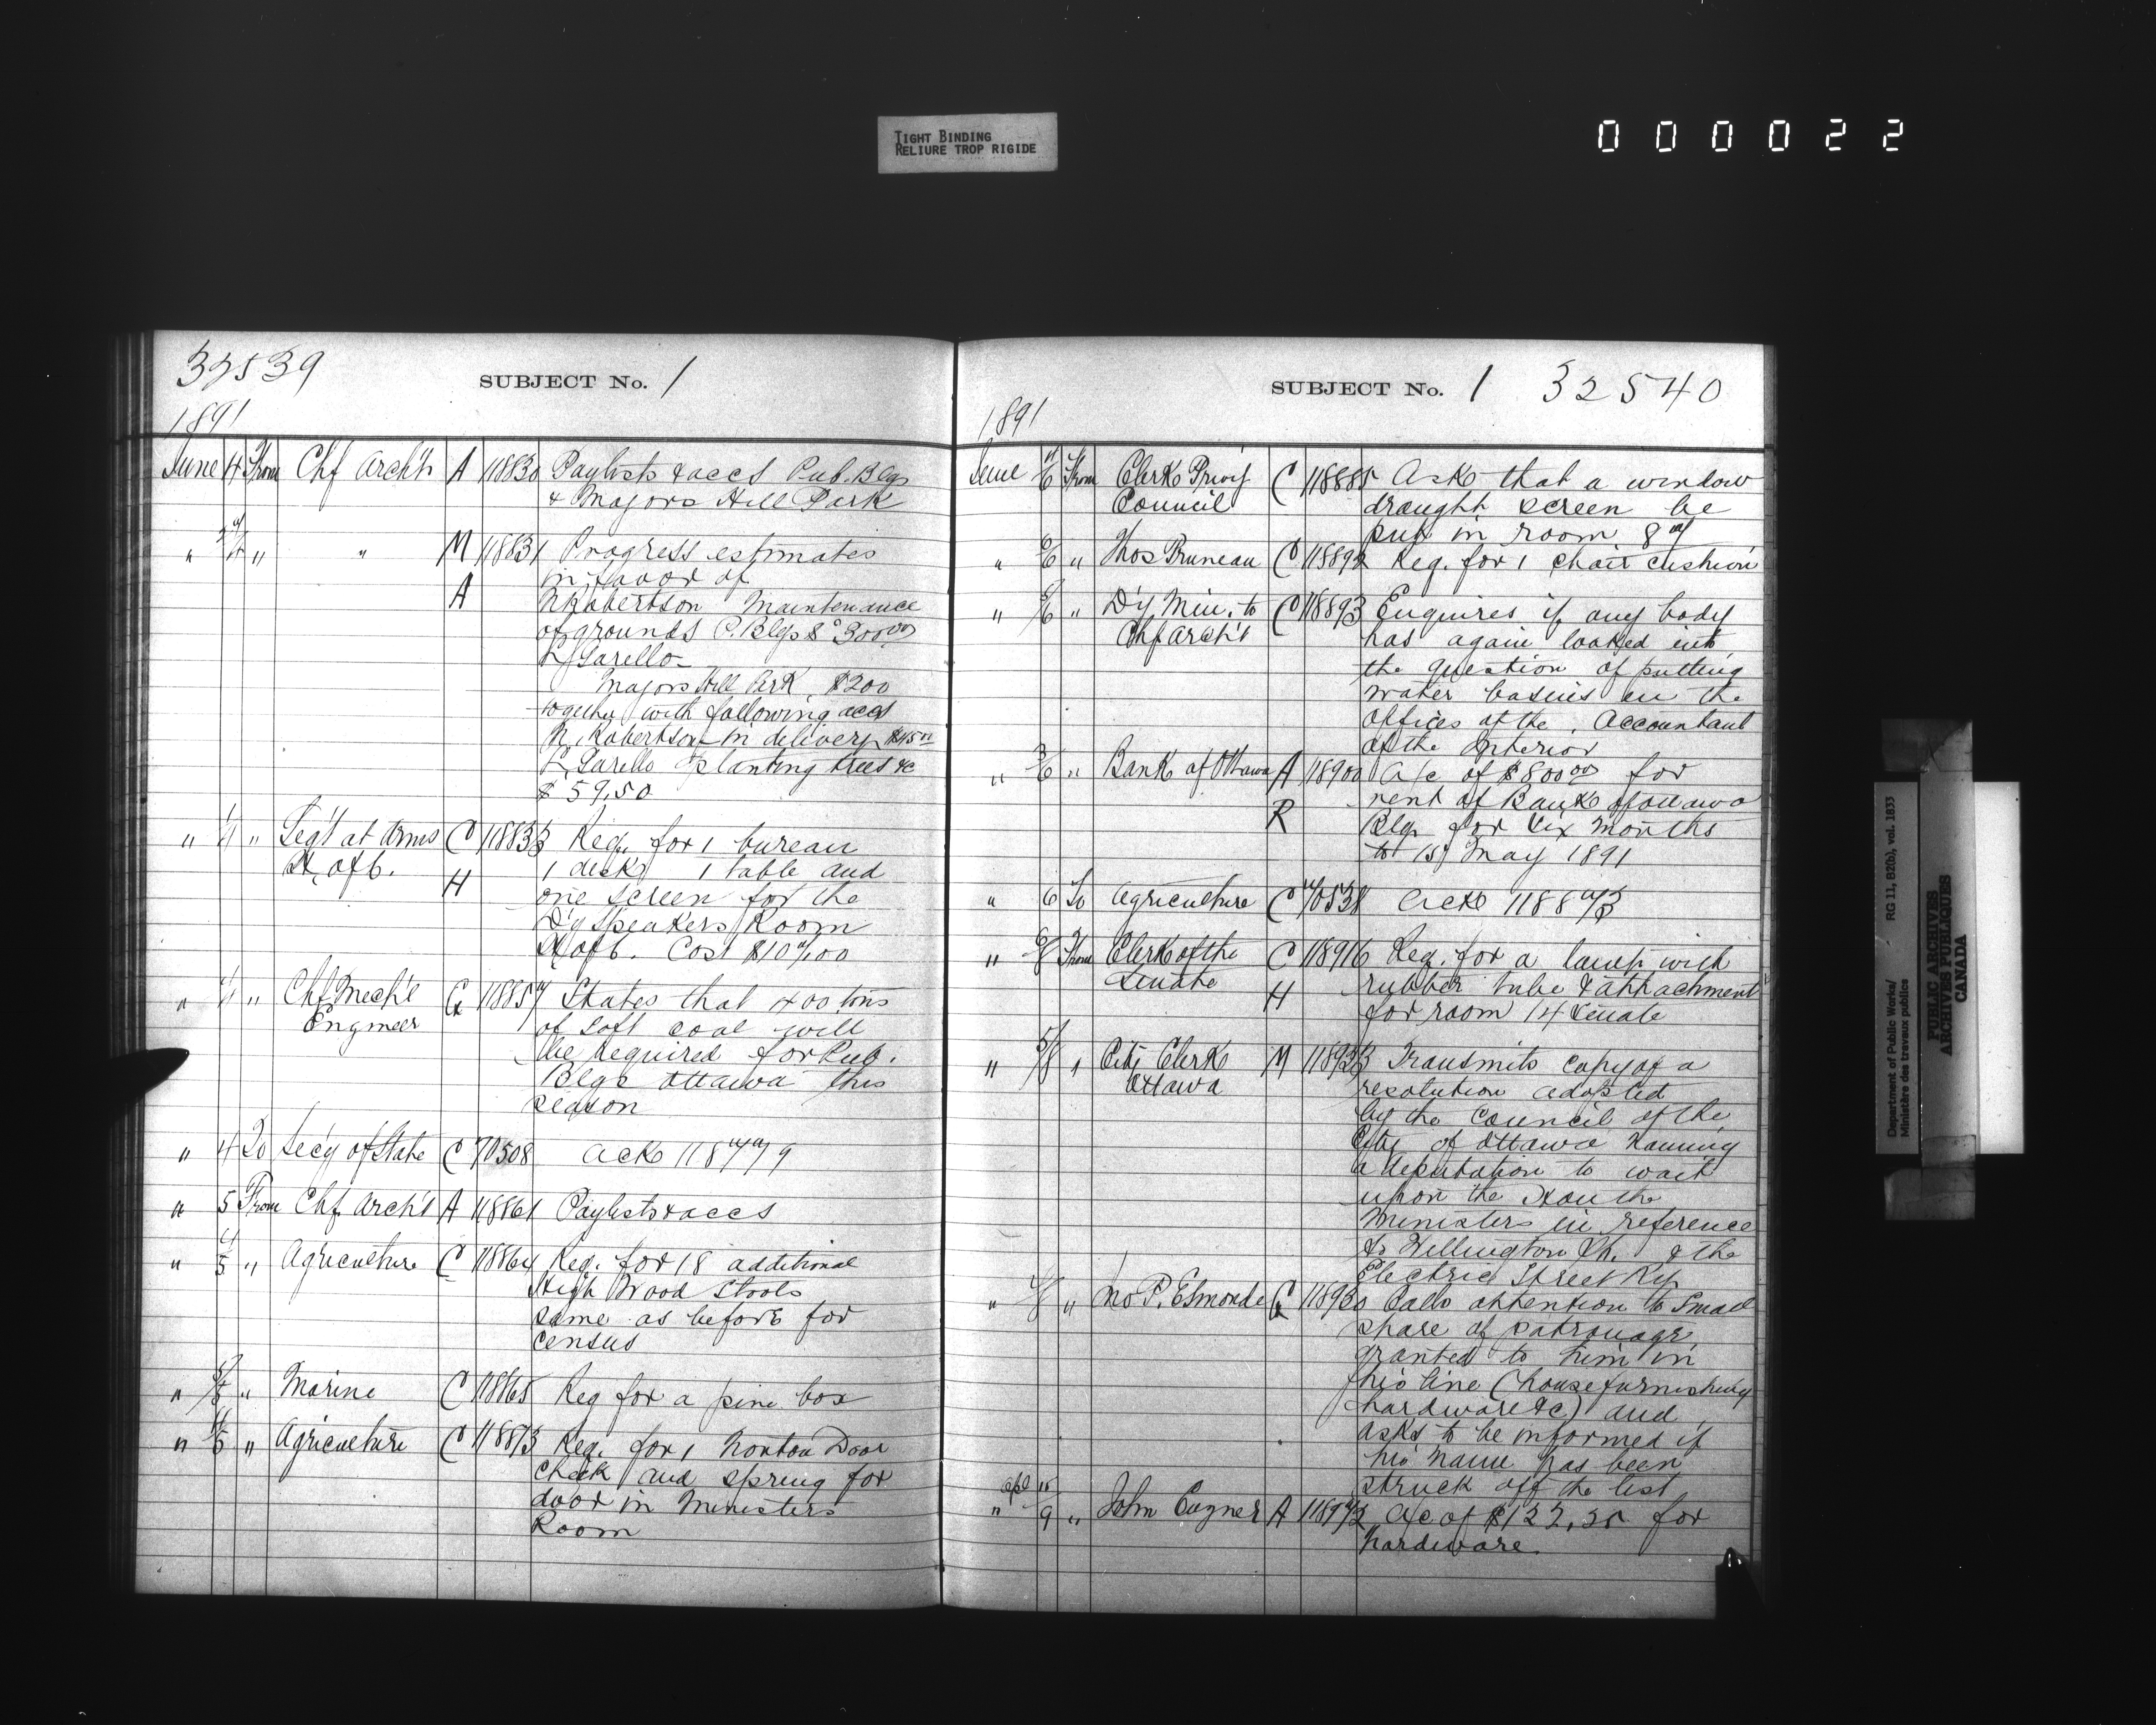 TIGHT BINDING
RELIURE TROP RIGIDE
000022
32539
SUBJECT No. 1
1891
June 4 From Chf Arch't A 118830 Paylists & accs Pub. Blgs
& Majors Hill Park
" " " M 118831 Progress estimates
in favor of
A N Robertson Maintenance
of grounds P. Blgs $300.00
Majors Hill Park $200
together with following accs
N. Robertson delivery $45.00
planting trees &c
$59.50
" " Seg't at Arms C 118833 Req. for 1 bureau
H. of C. 1 desk 1 table and
H one screen for the
D'y Speakers Room
H of C. Cost $107.00
" " Chf Mech'l C 118857 States that 400 tons
Engineer of soft coal will
be required for Pub.
Blgs Ottawa this
season
" 4 To Sec'y of State C 70508 Ack 118779
" 5 From Chf Arch't A 118861 Paylists & accs
" 4/5 " Agriculture C 118864 Req. for 18 additional
High Wood Stools
same as before for
census
" 5/5 " Marine C 118865 Req for a pine box
" 4/5 " Agriculture C 118873 Req. for 1 Norton Door
Check and spring for
door in Ministers
Room
SUBJECT No. 1 32540
1891
June 6 From Clerk Privy C 118885 Asks that a window
Council draught screen be
put in room 87
" 6/6 " Thos Pruneau C 118892 Req. for 1 chair cushion
" 5/6 " D'y Min. to C 118893 Enquires if any body
Chf Arch't has again looked into
the question of putting
water basins in the
offices of the Accountant
of the Interior
" 3/6 " Bank of Ottawa A 118900 A/c of $800.00 for
rent of Bank of Ottawa
R Blg. for six months
to 1st May 1891
" 6 To Agriculture C 70538 Ack 118873
" 6/8 From Clerk of the C 118916 Req. for a lamp with
Senate H rubber tube & attachment
for room 14 Senate
" 5/8 " City Clerk M 118923 Transmits copy of a
Ottawa resolution adopted
by the Council of the
City of Ottawa naming
a deputation to wait
upon the Hon the
Ministers in reference
to Wellington St. & the
Electric Street Ry
" " P. Esmonde 118930 Calls attention to small
share of patronage
granted to him in
his line (housefurnishing
hardware &c) and
asks to be informed if
his name has been
struck off the list
Apl 15
" 9 " John A 118972 A/c of $122.25 for
hardware.
Department of Public Works/ RG 11, B2(b), vol. 1833
Ministère des travaux publics
PUBLIC ARCHIVES
ARCHIVES PUBLIQUES
CANADA